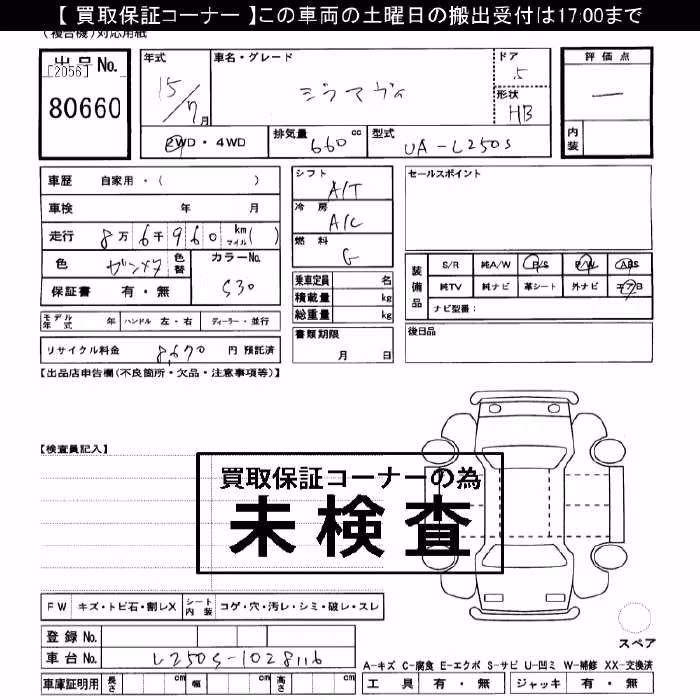 【 買取保証コーナー 】この車両の土曜日の搬出受付は17:00まで
(複合機)対応用紙
出品No. [2056] 80660
年式 15/7月
車名・グレード
ドア 5
形状 HB
評価点 —
内装
2WD・4WD
排気量 660 cc
型式 UA-L250S
車歴 自家用・( )
車検 年 月
走行 8万6千960 km マイル( )
色
色替
カラーNo. S30
保証書 有・無
モデル年式 年
ハンドル 左・右
ディーラー・並行
リサイクル料金 8,670 円 預託済
シフト A/T
冷房 A/C
燃料 G
乗車定員 名
積載量 kg
総重量 kg
書類期限 月 日
セールスポイント
装備品
S/R 純A/W P/S P/W ABS
純TV 純ナビ 革シート 外ナビ エアB
ナビ型番:
後日品
【出品店申告欄(不良箇所・欠品・注意事項等)】
【検査員記入】
買取保証コーナーの為
未検査
FW キズ・トビ石・割レX
シート内装 コゲ・穴・汚レ・シミ・破レ・スレ
スペア
登録No.
車台No. L250S-1028116
車庫証明用 長さ cm 幅 cm 高さ cm
A-キズ C-腐食 E-エクボ S-サビ U-凹ミ W-補修 XX-交換済
工具 有・無 ジャッキ 有・無